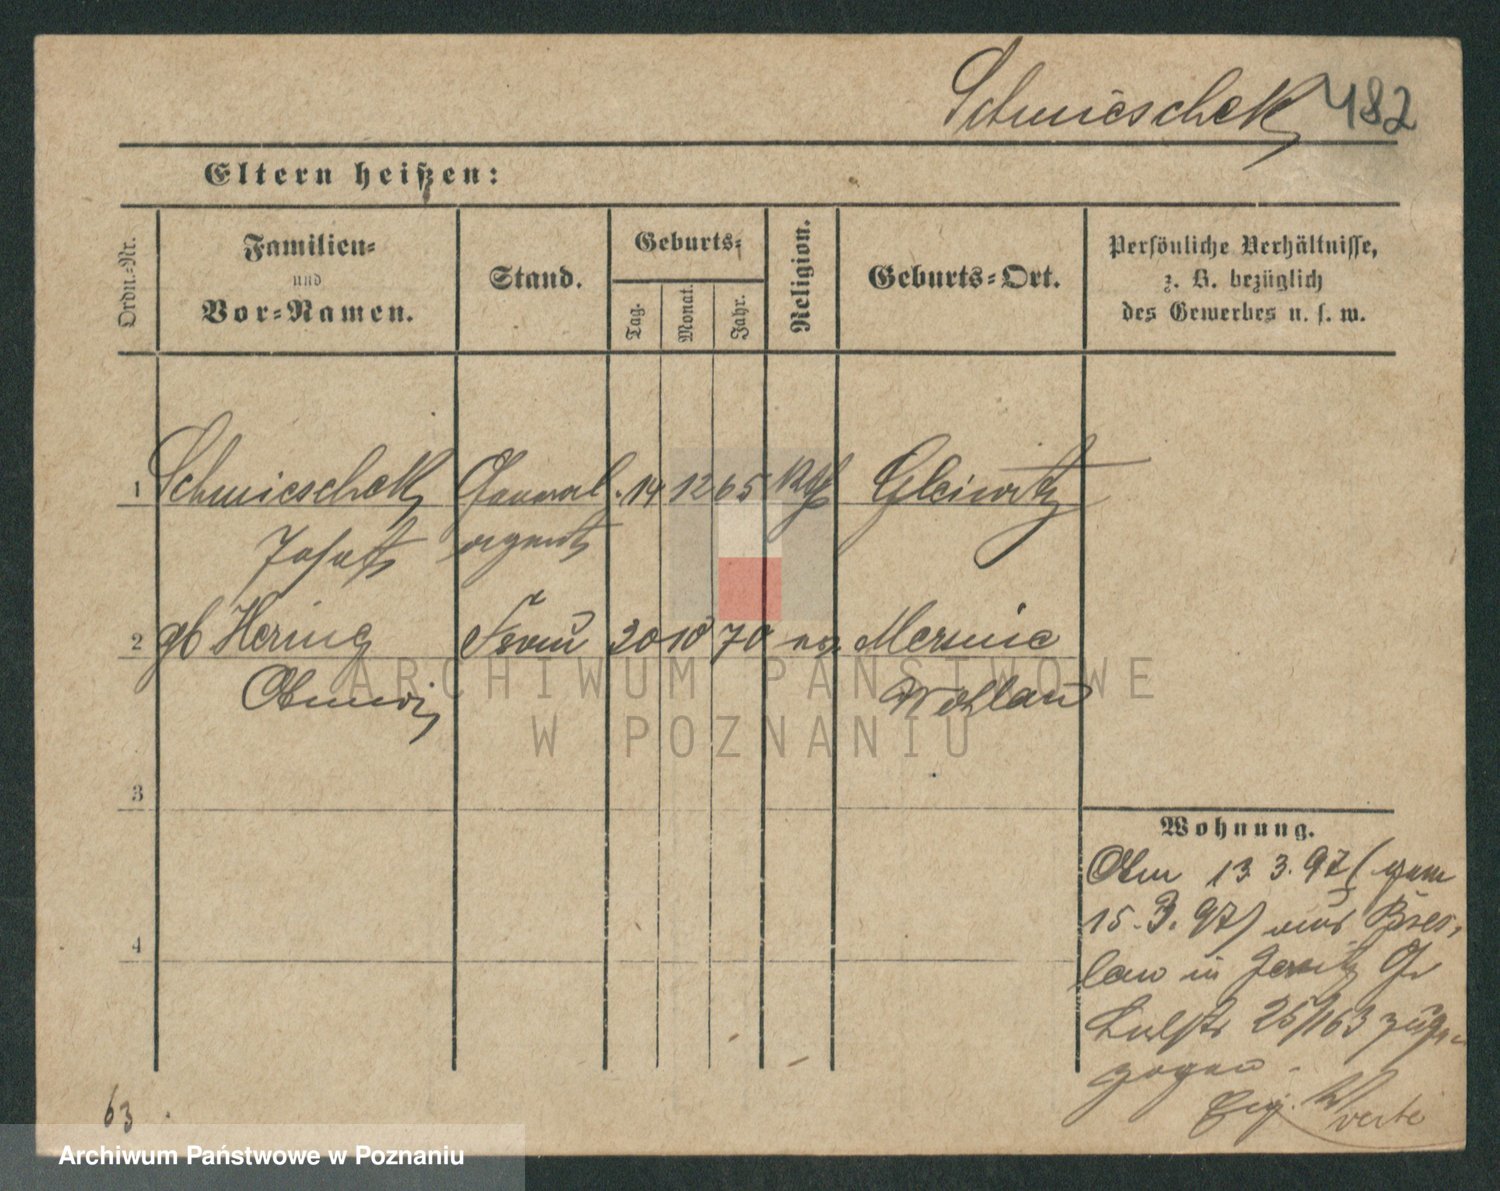 Schmieschek 482
Eltern heißen:
Ordn.-Nr.
Familien-
und
Vor-Namen.
Stand.
Geburts-
Tag.
Monat.
Jahr.
Religion.
Geburts-Ort.
Persönliche Verhältnisse,
z. B. bezüglich
des Gewerbes u. s. w.
1 Schmieschek General 14 12 65 Gleiwitz
Josef agent
2 gb Hering Frau 10 70 
Wohlau
3
4
Wohnung.
Am 13 3. 97 (gem
15. 3. 97) aus Bres-
lau in Jersitz Gr
25/163 zuge-
zogen.
verte
63
ARCHIWUM PAŃSTWOWE
W POZNANIU
Archiwum Państwowe w Poznaniu